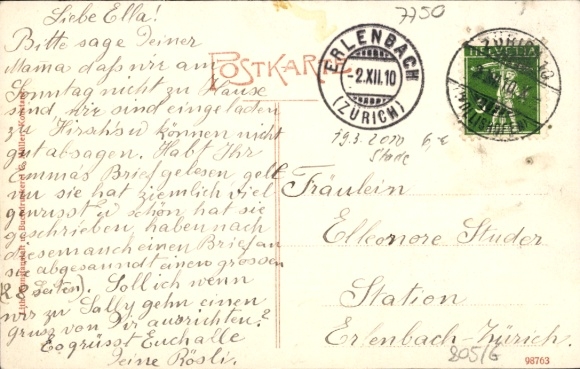 Liebe Ella!
Bitte sage Deiner
Mama dass wir am
Sonntag nicht zu Hause
sind wir sind eingeladen
zu Hirschs u können nicht
gut absagen. Habt Ihr
Emmas Brief gelesen gelt
nu sie hat ziemlich viel
gewusst u schön hat sie
geschrieben, haben nach
diesem auch einen Brief an
sie abgesanndt einen grossen
Seiten). Soll ich wenn
wir zu Sally gehn einen
gruss von Dir ausrichten?
Es grüsst Euch alle
Deine Rösli.
POSTKARTE
7750
ERLENBACH
2.XII.10
(ZÜRICH)
HELVETIA
19.3.2010 6,-
Fräulein
Elleonore Studer
Station
Erlenbach-Zürich.
205/G
98763